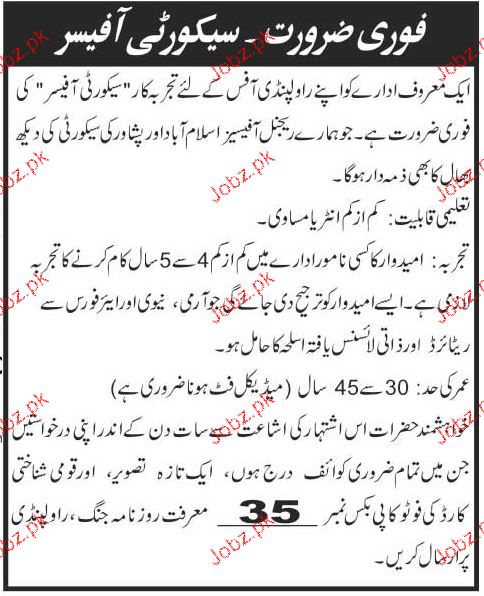 فوری ضرورت ۔ سیکورٹی آفیسر
ایک معروف ادارے کو اپنے راولپنڈی آفس کے لئے تجربہ کار "سیکورٹی آفیسر" کی
فوری ضرورت ہے۔ جو ہمارے ریجنل آفیسیز اسلام آباد اور پشاور کی سیکورٹی کی دیکھ
بھال کا بھی ذمہ دار ہوگا۔
تعلیمی قابلیت: کم از کم انٹر یا مساوی۔
تجربہ: امیدوار کا کسی نامور ادارے میں کم از کم 4 سے 5 سال کام کرنے کا تجربہ
لازمی ہے۔ ایسے امیدوار کو ترجیح دی جائے گی جو آرمی، نیوی اور ایئر فورس سے
ریٹائرڈ اور ذاتی لائسنس یافتہ اسلحہ کا حامل ہو۔
عمر کی حد: 30 سے 45 سال (میڈیکل فٹ ہونا ضروری ہے)
خواہشمند حضرات اس اشتہار کی اشاعت سے سات دن کے اندر اپنی درخواستیں
جن میں تمام ضروری کوائف درج ہوں، ایک تازہ تصویر، اور قومی شناختی
کارڈ کی فوٹو کاپی بکس نمبر 35 معرفت روزنامہ جنگ، راولپنڈی
پر ارسال کریں۔
Jobz.pk